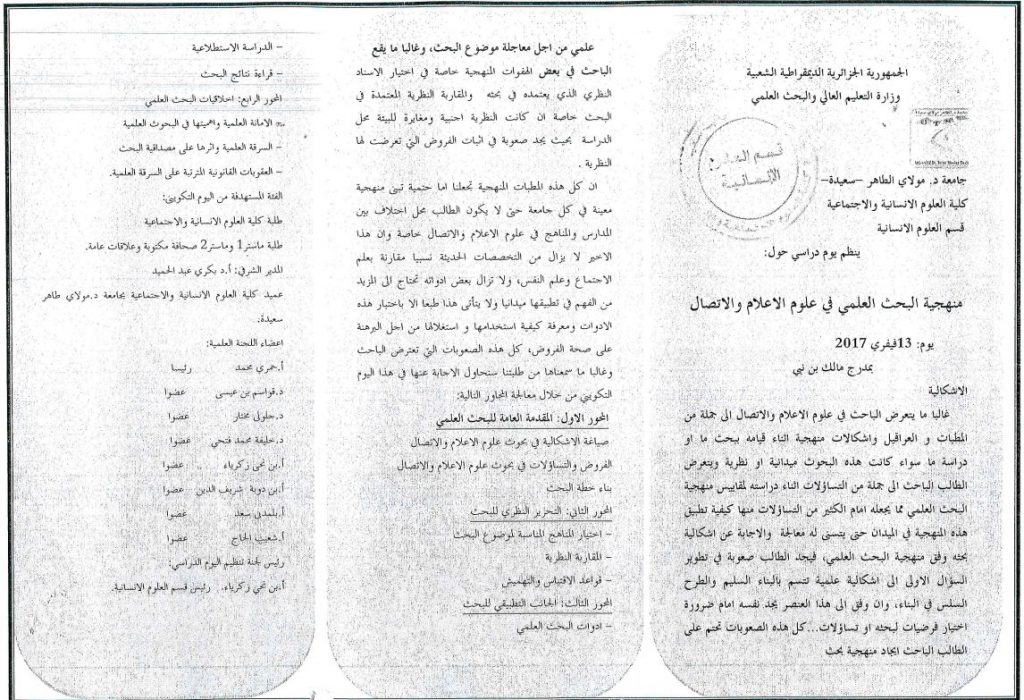 الجمهورية الجزائرية الديمقراطية الشعبية
وزارة التعليم العالي والبحث العلمي
قسم العلوم
الإنسانية
جامعة د. مولاي الطاهر –سعيدة–
كلية العلوم الانسانية والاجتماعية
قسم العلوم الانسانية
ينظم يوم دراسي حول:
منهجية البحث العلمي في علوم الاعلام والاتصال
يوم: 13فيفري 2017
بمدرج مالك بن نبي
الاشكالية
غالبا ما يتعرض الباحث في علوم الاعلام والاتصال الى جملة من
المطبات و العراقيل واشكالات منهجية اثناء قيامه ببحث ما او
دراسة ما سواء كانت هذه البحوث ميدانية او نظرية ويتعرض
الطالب الباحث الى جملة من التساؤلات اثناء دراسته لمقاييس منهجية
البحث العلمي مما يجعله امام الكثير من التساؤلات منها كيفية تطبيق
هذه المنهجية في الميدان حتى يتسنى له معالجة والاجابة عن اشكالية
بحثه وفق منهجية البحث العلمي، فيجد الطالب صعوبة في تطوير
السؤال الاولى الى اشكالية علمية تتسم بالبناء السليم والطرح
السلس في البناء، وان وفق الى هذا العنصر يجد نفسه امام ضرورة
اختيار فرضيات لبحثه او تساؤلات...كل هذه الصعوبات تحتم على
الطالب الباحث ايجاد منهجية بحث
علمي من اجل معاجلة موضوع البحث، وغالبا ما يقع
الباحث في بعض الهفوات المنهجية خاصة في اختيار الاسناد
النظري الذي يعتمده في بحثه والمقاربة النظرية المعتمدة في
البحث خاصة ان كانت النظرية اجنبية ومغايرة للبيئة محل
الدراسة بحيث يجد صعوبة في اثبات الفروض التي تعرضت لها
النظرية .
ان كل هذه المطبات المنهجية تجعلنا اما حتمية تبنى منهجية
معينة في كل جامعة حتى لا يكون الطالب محل اختلاف بين
المدارس والمناهج في علوم الاعلام والاتصال خاصة وان هذا
الاخير لا يزال من التخصصات الحديثة نسبيا مقارنة بعلم
الاجتماع وعلم النفس، ولا تزال بعض ادواته تحتاج الى المزيد
من الفهم في تطبيقها ميدانيا ولا يتأتى هذا طبعا الا باختبار هذه
الادوات ومعرفة كيفية استخدامها و استغلالها من اجل البرهنة
على صحة الفروض، كل هذه الصعوبات التي تعترض الباحث
وغالبا ما سمعناها من طلبتنا سنحاول الاجابة عنها في هذا اليوم
التكويني من خلال معالجة المحاور التالية:
المحور الاول: المقدمة العامة للبحث العلمي
صياغة الاشكالية في بحوث علوم الاعلام والاتصال
الفروض والتساؤلات في بحوث علوم الاعلام والاتصال
بناء خطة البحث
المحور الثاني: التحرير النظري للبحث
– اختيار المناهج المناسبة لموضوع البحث
– المقاربة النظرية
– قواعد الاقتباس والتهميش
المحور الثالث: الجانب التطبيقي للبحث
– ادوات البحث العلمي
– الدراسة الاستطلاعية
– قراءة نتائج البحث
المحور الرابع: اخلاقيات البحث العلمي
– الامانة العلمية واهميتها في البحوث العلمية
– السرقة العلمية واثرها على مصداقية البحث
– العقوبات القانونية المترتبة على السرقة العلمية.
الفئة المستهدفة من اليوم التكويني:
طلبة كلية العلوم الانسانية والاجتماعية
طلبة ماستر1 وماستر2 صحافة مكتوبة وعلاقات عامة.
المدير الشرفي: أ.د بكري عبد الحميد
عميد كلية العلوم الانسانية والاجتماعية بجامعة د.مولاي طاهر
سعيدة.
اعضاء اللجنة العلمية:
أ.حمري محمد رئيسا
د.قواسم بن عيسى عضوا
د.حلولي مختار عضوا
د.خليفة محمد فتحي عضوا
أ.بن نحي زكرياء عضوا
أ.بن دوبة شريف الدين عضوا
أ.بلمدني سعد عضوا
أ.شعيب الحاج عضوا
رئيس لجنة تنظيم اليوم الدراسي:
أ.بن نحي زكرياء. رئيس قسم العلوم الانسانية.